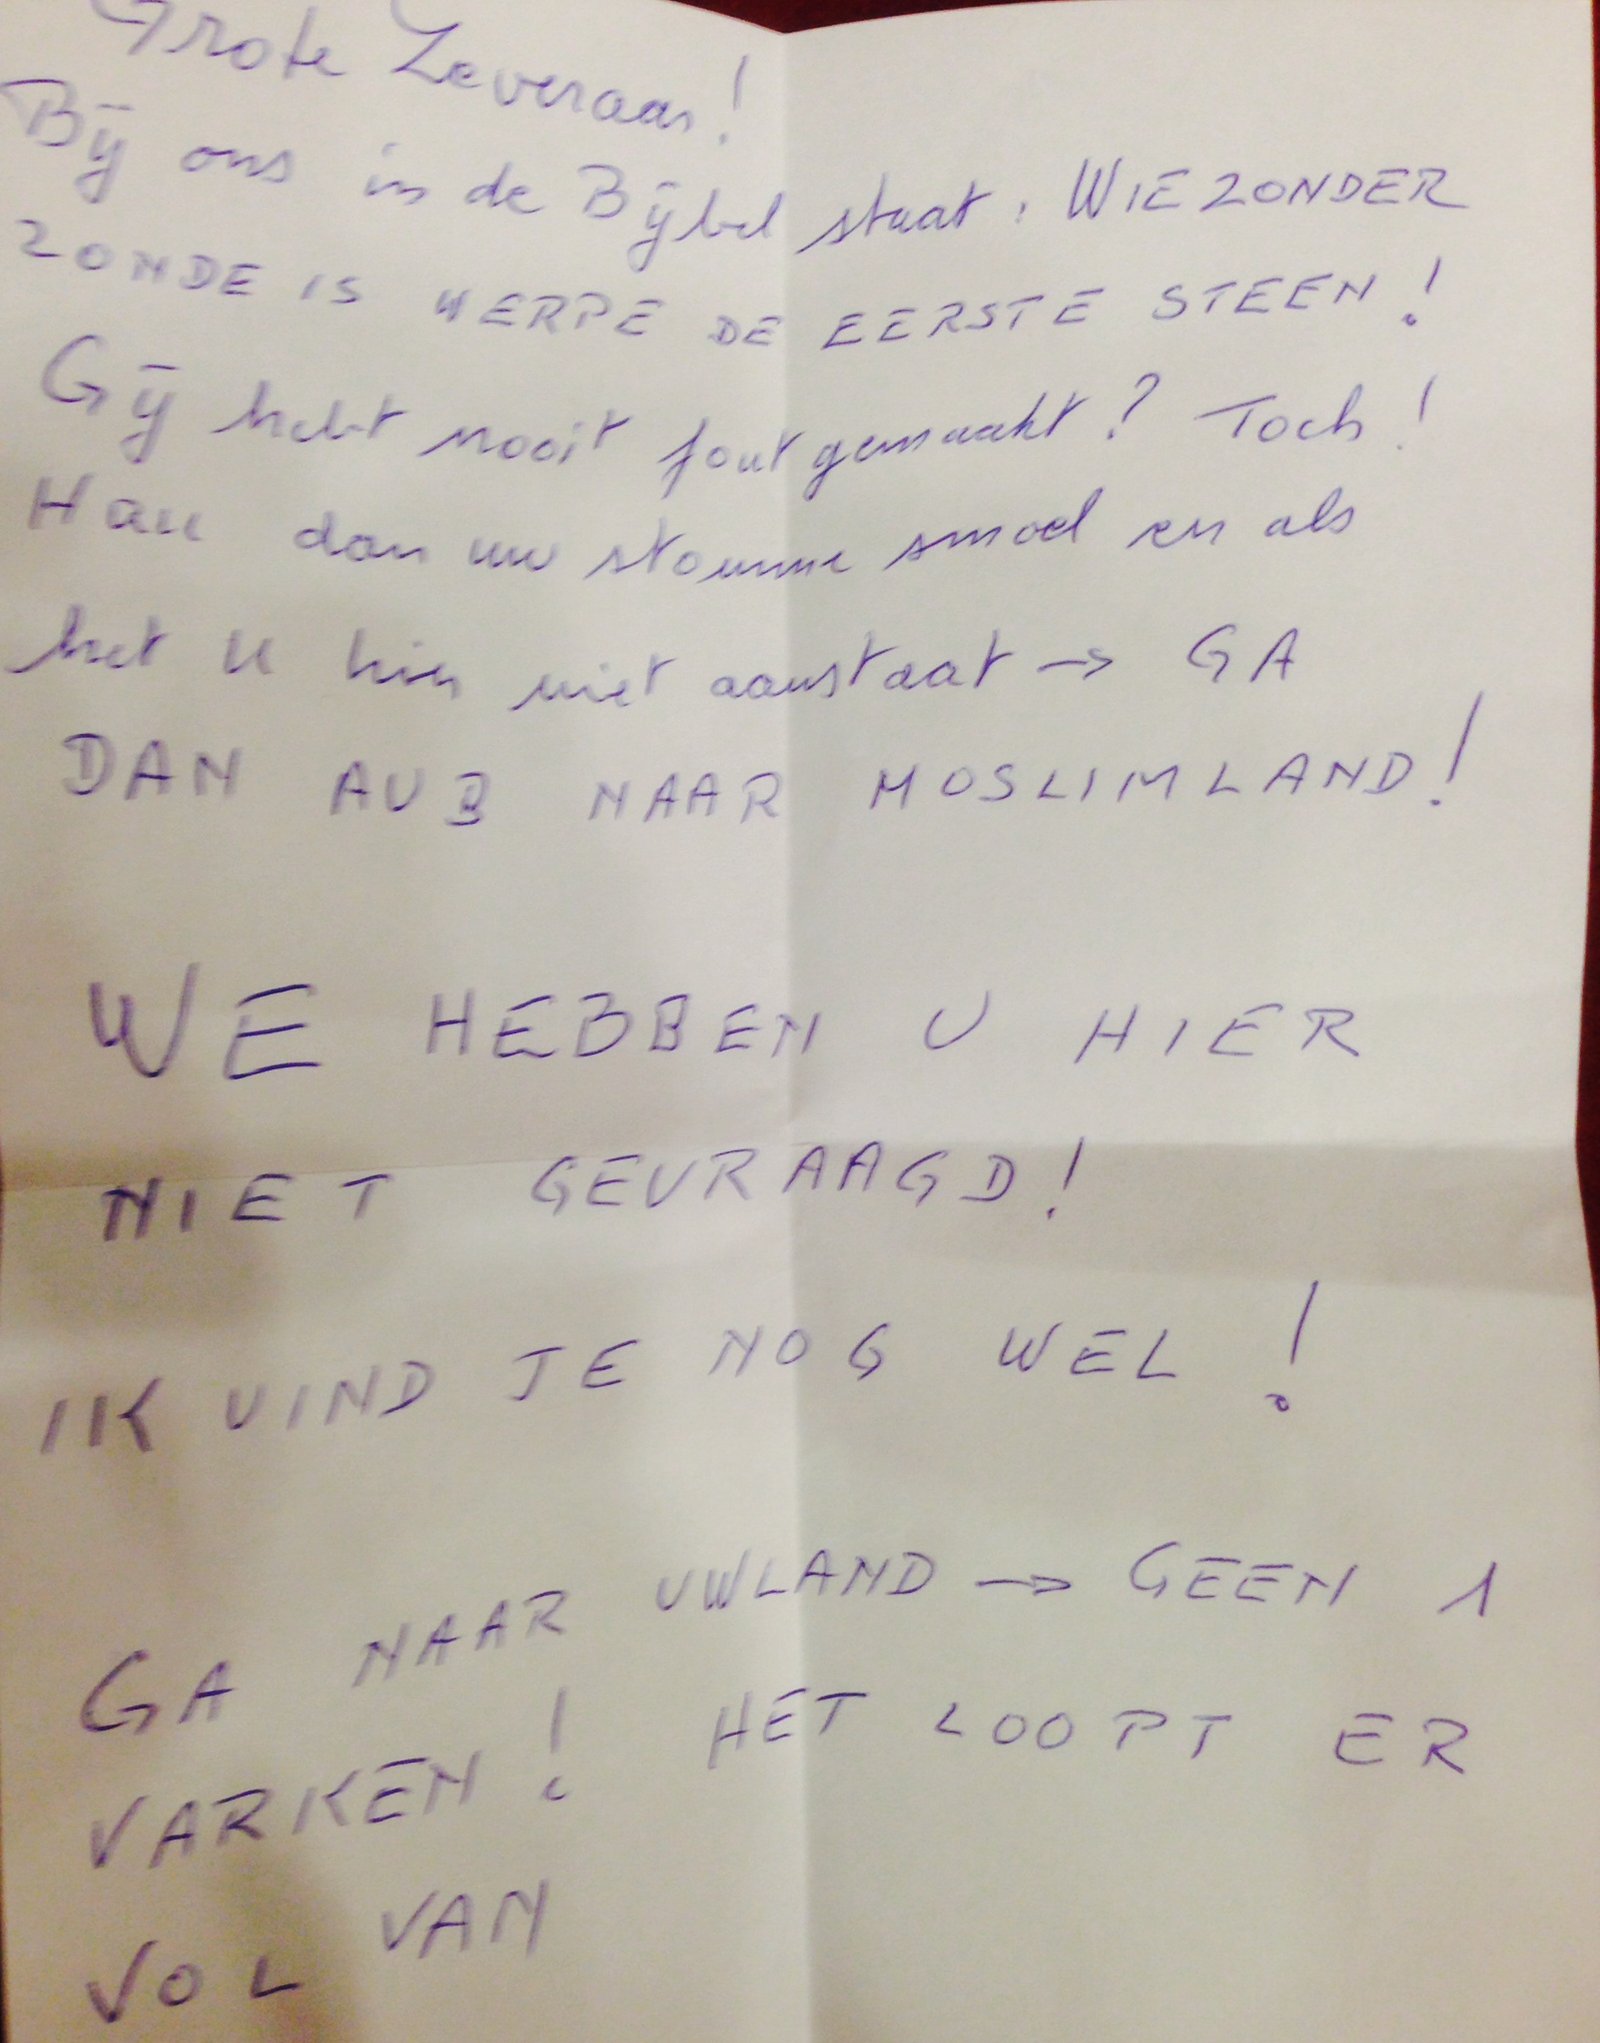 Grote Zeveraar!
Bij ons in de Bijbel staat: WIE ZONDER
ZONDE IS WERPE DE EERSTE STEEN!
Gij hebt nooit fout gemaakt? Toch!
Hau dan uw stomme smoel en als
het U hier niet aanstaat → GA
DAN AUB NAAR MOSLIMLAND!
WE HEBBEN U HIER
NIET GEVRAAGD!
IK VIND JE NOG WEL!
GA NAAR UW LAND → GEEN 1
VARKEN! HET LOOPT ER
VOL VAN